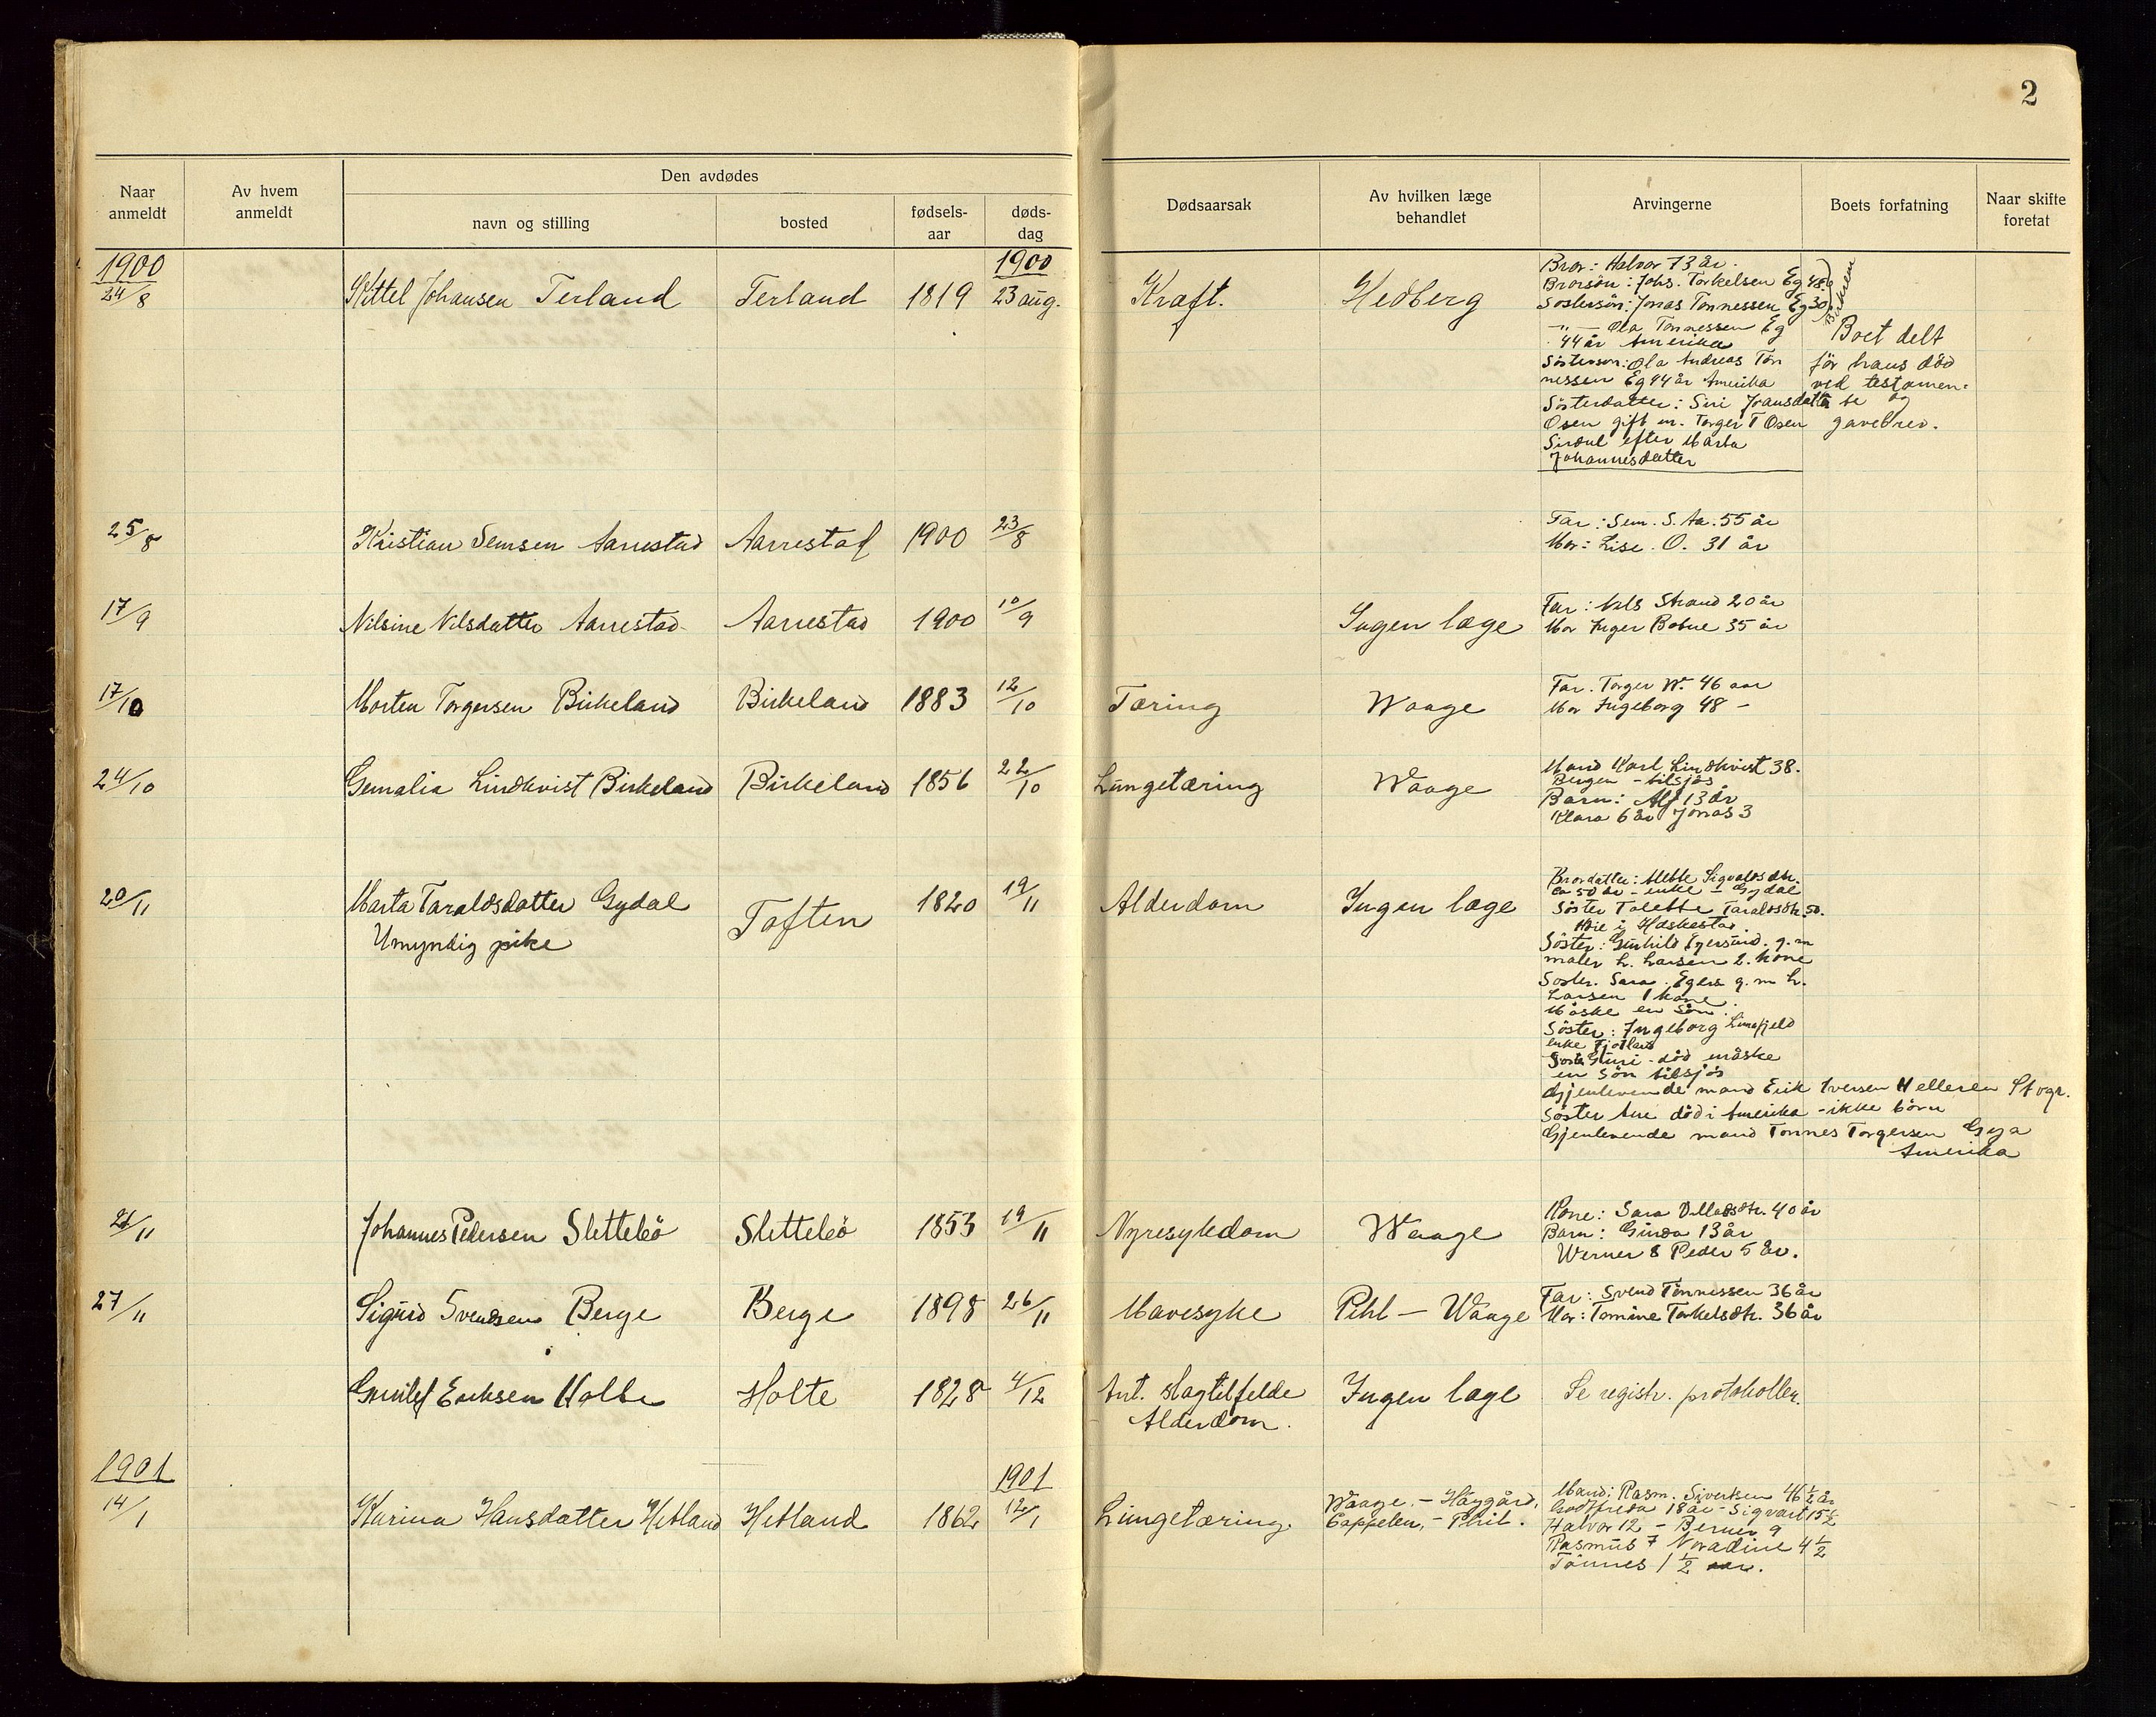 2
Naar anmeldt
Av hvem anmeldt
Den avdødes
navn og stilling
bosted
fødsels-aar
døds-dag
Dødsaarsak
Av hvilken læge behandlet
Arvingerne
Boets forfatning
Naar skifte foretat
1900
1900
24/8 Kittel Johansen Terland Terland 1819 23 aug. Kræft. Hedberg
Bror: Halvor 73 år.
Brorsön: Johs. Torkelsen Eg 48
Söstersön: Jonas Tönnessen Eg 30
Birkrem
-"- Ola Tönnessen Eg
44 år Amerika
Söstersøn: Ola Andreas Tön
nessen Eg 44 år Amerika
Sösterdatter: Siri Jonasdatter
Osen gift m. Torger T Osen
Sirdal efter Marta
Johannesdatter
Boet delt
för hans död
ved testamen=
te og
gavebrev.
25/8 Kristian Semsen Aarrestad Aarrestad 1900 23/8
Far: Sem. S. Aa. 55 år
Mor: Lise. O. 31 år
17/9 Nilsine Nilsdatter Aarrestad Aarrestad 1900 10/9 Ingen læge
Far: Nils Strand 20 år
Mor Inger Bobne 35 år
17/10 Morten Torgersen Birkeland Birkeland 1883 12/10 Tæring Waage
Far. Torger W. 46 aar
Mor Ingeborg 48 -
24/10 Gemalia Lindkvist Birkeland Birkeland 1856 22/10 Lungetæring Waage
Mand Karl Lindkvist 38.
Bergen - tilsjös
Barn: Alf 13 år
Klara 6 år Jonas 3
20/11 Marta Taraldsdatter Gydal Toften 1820 19/11 Alderdom Ingen læge
Umyndig pike
Brordatter: Mette Sigvalds dtr.
ca 50 år - enke - Gydal
Söster Tolette Taraldsdtr. 50.
i Heskestad
Söster: Gunhild Egersund. g. m
maler L. Larsen 2. kone
Söster. Sara. Egers g. m L.
Larsen 1 kone.
Måske en sön.
Söster: Ingeborg
enke Fjotland
Söster Guri - död måske
en sön tilsjös
Gjenlevende mand Erik Iversen Helleren Sogr.
Söster Ane död i Amerika - ikke börn
Gjenlevende mand Tönnes Torgersen Gya
Amerika
21/11 Johannes Pedersen Slettebö Slettebö 1853 19/11 Nyresykdom Waage
Kone: Sara Olladsdtr. 40 år
Barn: Ginda 13 år
Werner 8 Peder 5 år.
27/11 Sigurd Svendsen Berge Berge 1898 26/11 Mavesyke Pihl - Waage
Far: Svend Tönnessen 36 år
Mor: Tomine Torkelsdtr. 36 år
Gunlef Eriksen Holte Holte 1828 4/12 Ant. slagtilfelde Ingen læge Se registr. protokollen.
Alderdom.
1901
1901
14/1 Karina Hansdatter Hetland Hetland 1862 12/1 Lungetæring.
Waage, - Haygård,
Cappelen, - Phil.
Mand: Rasm. Sivertsen 46 1/2 år
Godtfreda 18 år - Sigvart 15 1/2
Halvor 12 - Berner 9
Rasmus 7 Noradine 4 1/2
Tönnes 1 1/2 aar.